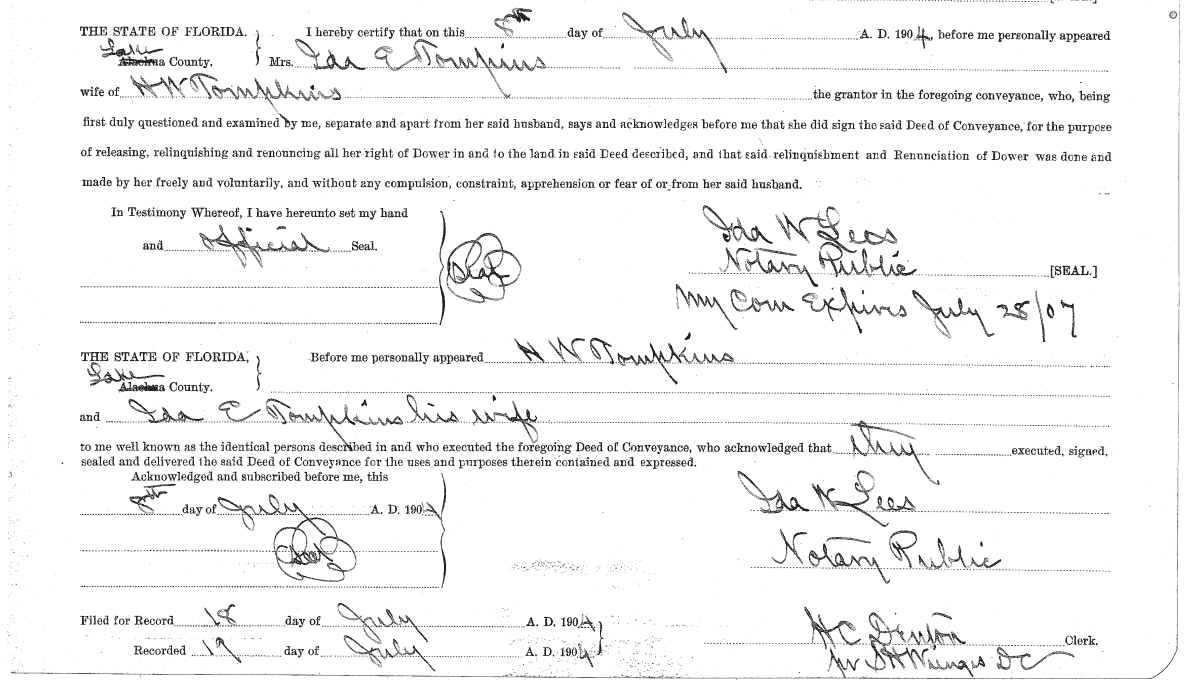 THE STATE OF FLORIDA. I hereby certify that on this 8th day of July A. D. 1904, before me personally appeared
Lake
Alachua County. Mrs. Ida E Tompkins
wife of H W Tompkins the grantor in the foregoing conveyance, who, being
first duly questioned and examined by me, separate and apart from her said husband, says and acknowledges before me that she did sign the said Deed of Conveyance, for the purpose
of releasing, relinquishing and renouncing all her right of Dower in and to the land in said Deed described, and that said relinquishment and Renunciation of Dower was done and
made by her freely and voluntarily, and without any compulsion, constraint, apprehension or fear of or from her said husband.
In Testimony Whereof, I have hereunto set my hand
and official Seal.
Seal
Ida W Lees
Notary Public [SEAL.]
My Com Expires July 28/07
THE STATE OF FLORIDA, Before me personally appeared H W Tompkins
Lake
Alachua County.
and Ida E Tompkins his wife
to me well known as the identical persons described in and who executed the foregoing Deed of Conveyance, who acknowledged that they executed, signed,
sealed and delivered the said Deed of Conveyance for the uses and purposes therein contained and expressed.
Acknowledged and subscribed before me, this
8th day of July A. D. 1904
Seal
Ida W Lees
Notary Public
Filed for Record 18 day of July A. D. 1904
Recorded 19 day of July A. D. 1904
H C Denton Clerk.
pr S H Wienges D C